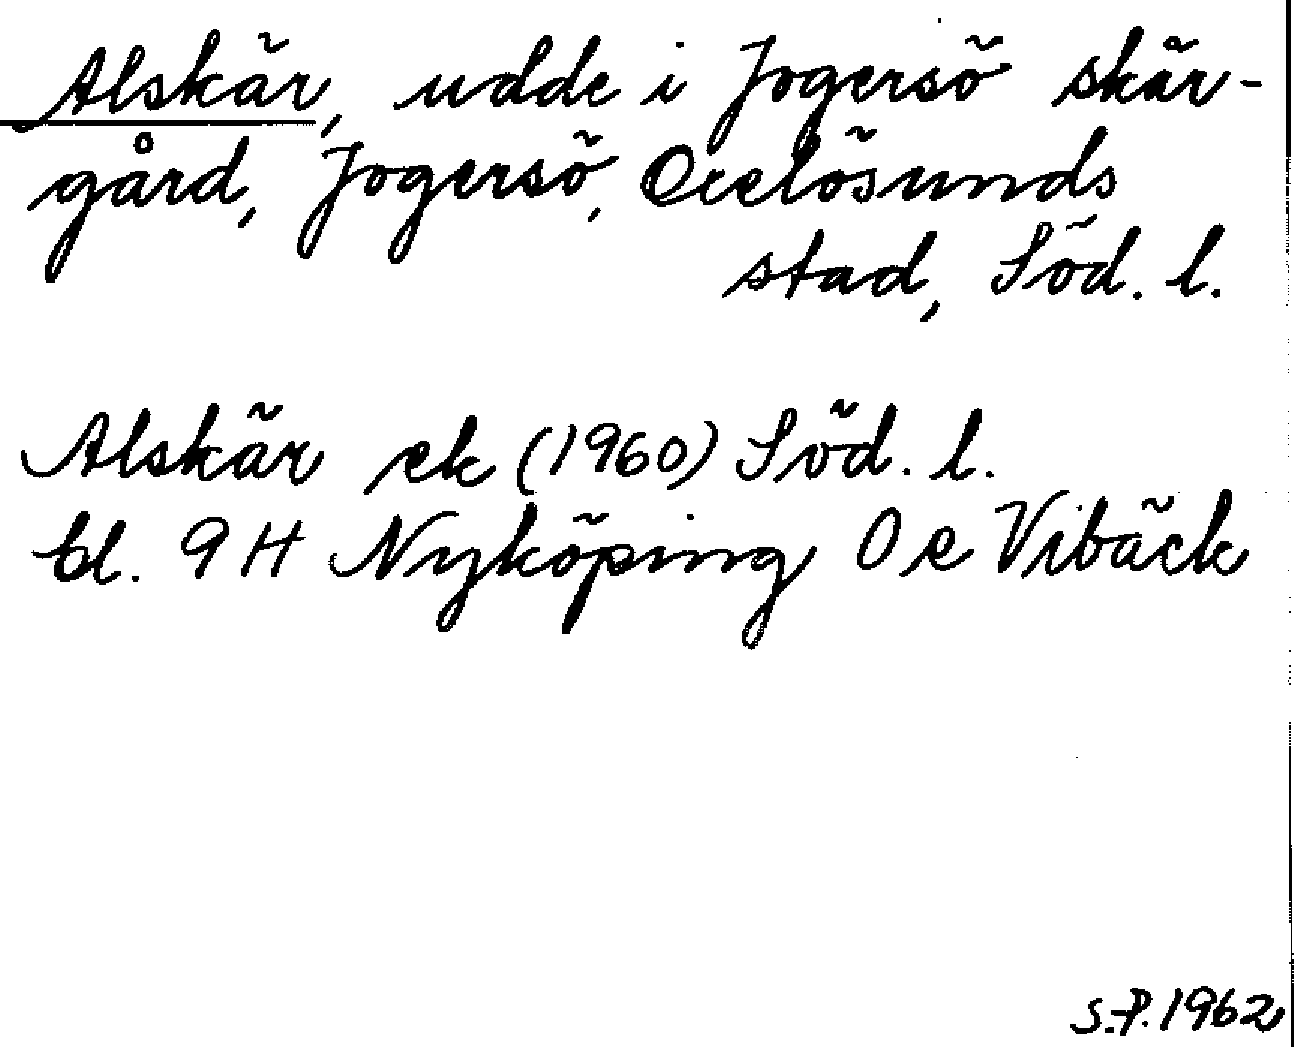 Alskär, udde i Jogersö skär-
gård, Jogersö, Oxelösunds
stad, Söd. l.
Alskär ek (1960) Söd. l.
bl. 9 H Nyköping O e Vibäck
S.-P. 1962